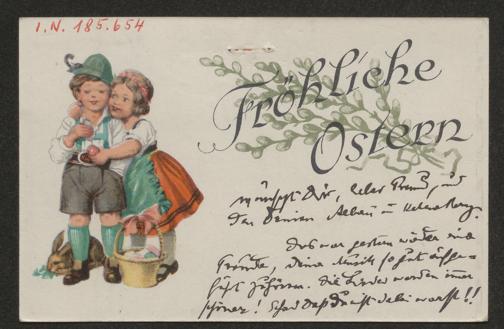 I.N. 185.654
Fröhliche
Ostern
wünscht Dir, lieber Freund, und
den Deinen Alban u Helene Berg.
Das war gestern wieder eine
Freude, deine Musik so gut aufge-
führt zu hören. Die Lieder werden immer
schöner! Schad daß Du nicht dabei warst!!